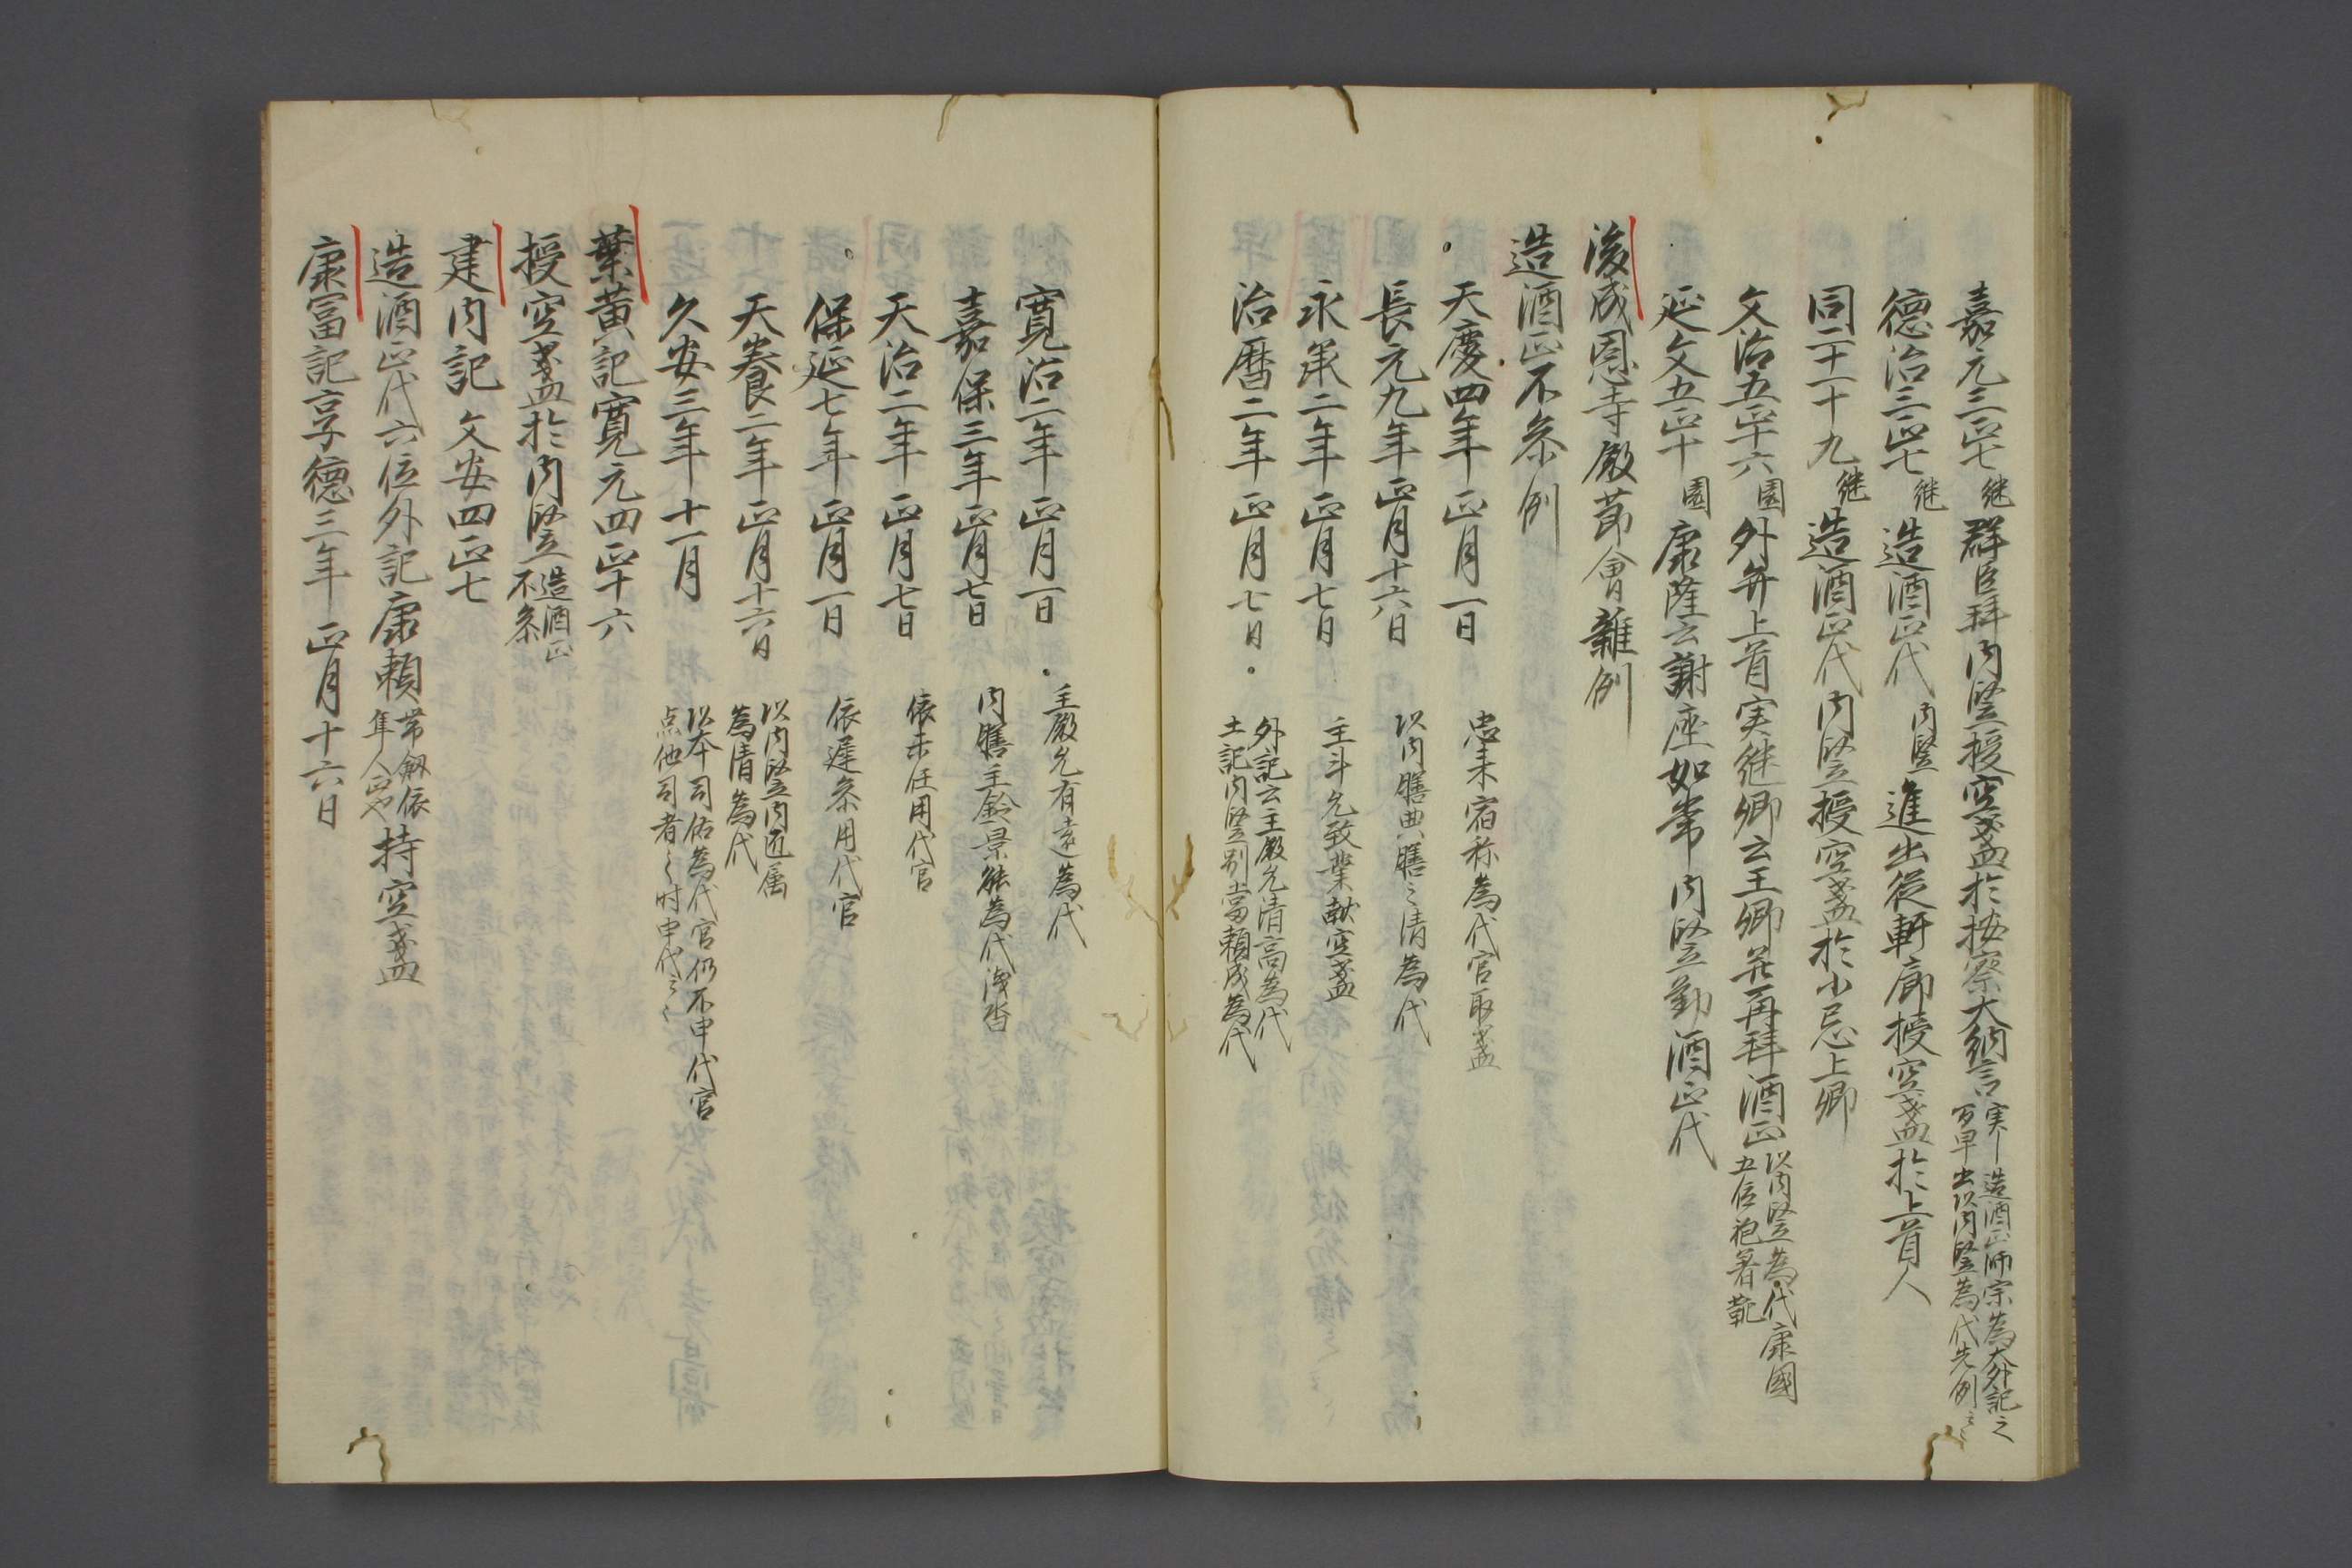 嘉元三正七継群臣拝内竪授空盞於按察大納言実ー造酒正師宗為大外記之
百早出以内竪為代先例云々
徳治三正七継造酒正代内竪進出従軒廊授空盞於上首人
同二十一十九継造酒正代内竪授空盞於小忌上卿
文治五正十六園外弁上首実継卿云王卿并再拝酒正以内竪為代康国
五位袍着靴
延文五正十園康隆云謝座如常内竪勤酒正代
後成恩寺殿節會雑例
造酒正不参例
天慶四年正月一日 忠来宿称為代官取盞
長元九年正月十六日 以内膳典膳之清為代
永承二年正月七日 主斗允致業献空盞
治暦二年正月七日 外記云主殿允清高為代
土記内竪別当頼成為代
寛治二年正月一日 主殿允有遠為代
嘉保三年正月七日 内膳主鈴景能為代浅沓
天治二年正月七日 依未任用代官
保延七年正月一日 依遅参用代官
天養二年正月十六日 以内竪内匠属
為清為代
久安三年十一月 以本司佑為代官仍不申代官
点他司者之時申代云々
葉黄記寛元四正十六
授空盞於内竪造酒正
不参
建内記 文安四正七
造酒正代六位外記康頼帯剱依
隼人正也持空盞
康冨記享徳三年正月十六日